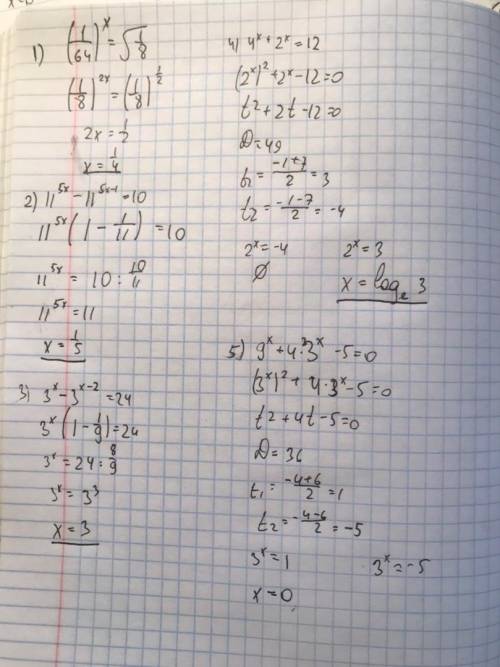 1) (1/64)^x = √(1/8)
(1/8)^2x = (1/8)^1/2
2x = 1/2
x = 1/4
2) 11^5x - 11^5x-1 = 10
11^5x (1 - 1/11) = 10
11^5x = 10 : 10/11
11^5x = 11
x = 1/5
3) 3^x - 3^x-2 = 24
3^x (1 - 1/9) = 24
3^x = 24 : 8/9
3^x = 3^3
x = 3
4) 4^x + 2^x = 12
(2^x)^2 + 2^x - 12 = 0
t^2 + 2t - 12 = 0
D = 49
t1 = (-1+7)/2 = 3
t2 = (-1-7)/2 = -4
2^x = -4 2^x = 3
∅ x = log_2 3
5) 9^x + 4·3^x - 5 = 0
(3^x)^2 + 4·3^x - 5 = 0
t^2 + 4t - 5 = 0
D = 36
t1 = (-4+6)/2 = 1
t2 = (-4-6)/2 = -5
3^x = 1 3^x = -5
x = 0